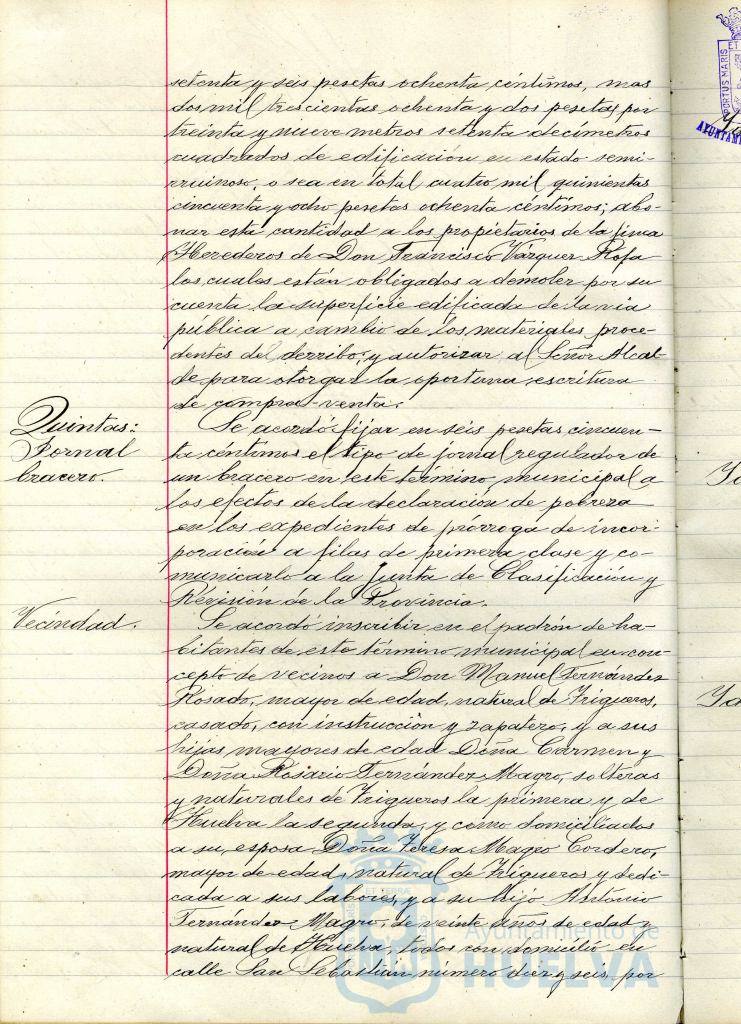 setenta y seis pesetas ochenta céntimos, mas
dos mil trescientas ochenta y dos pesetas por
treinta y nueve metros setenta decímetros
cuadrados de edificación en estado semi-
rruinoso, o sea en total cuatro mil quinientas
cincuenta y ocho pesetas ochenta céntimos; abo-
nar esta cantidad a los propietarios de la finca
Herederos de Don Francisco Vázquez Rofa
los cuales están obligados a demoler por su
cuenta la superficie edificada de la via
pública a cambio de los materiales proce-
dentes del derribo; y autorizar al Señor Alcal-
de para otorgar la oportuna escritura
de compra-venta.
Quintas:
Jornal
bracero.
Se acordó fijar en seis pesetas cincuen-
ta céntimos el tipo de jornal regulador de
un bracero en este término municipal a
los efectos de la declaración de pobreza
en los expedientes de prórroga de incor-
poración a filas de primera clase y co-
municarlo a la Junta de Clasificación y
Revisión de la Provincia.
Vecindad.
Se acordó inscribir en el padrón de ha-
bitantes de este término municipal en con-
cepto de vecinos a Don Manuel Fernández
Rosado, mayor de edad, natural de Trigueros,
casado, con instrucción y zapatero, y a sus
hijas mayores de edad Doña Carmen y
Doña Rosario Fernández Magro, solteras
y naturales de Trigueros la primera y de
Huelva la segunda, y como domiciliados
a su esposa Doña Teresa Magro Cordero,
mayor de edad, natural de Trigueros y dedi-
cada a sus labores, y a su hijo Antonio
Fernández Magro, de veinte años de edad y
natural de Huelva, todos con domicilio en
calle San Sebastián número diez y seis, por
Ayuntamiento de
HUELVA
PORTUS MARIS ET
AYUNTAM